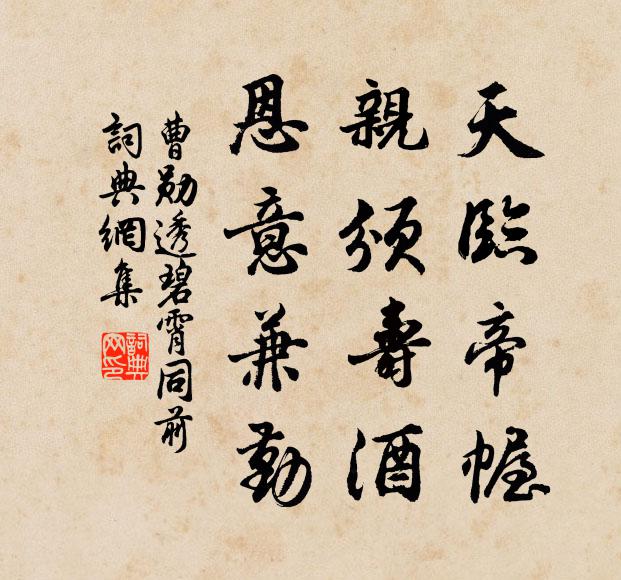 天臨帝幄
親頒壽酒
恩意兼勤
曹勛透碧霄同前
詞典網集
詞典网印